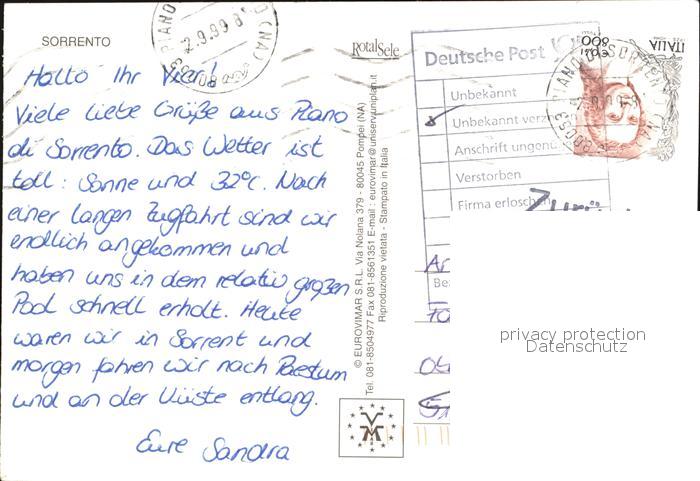 SORRENTO
Hallo Ihr Vier!
Viele liebe Grüße aus Piano
di Sorrento. Das Wetter ist
toll: Sonne und 32°C. Nach
einer langen Zugfahrt sind wir
endlich angekommen und
haben uns in dem relativ großen
Pool schnell erholt. Heute
waren wir in Sorrent und
morgen fahren wir nach Paestum
und an der Küste entlang.
Eure Sandra
RotalSele
© EUROVIMAR S.R.L. Via Nolana 379 - 80045 Pompei (NA)
Tel. 081-8504977 Fax 081-8561351 E-mail: eurovimar@uniserv.uniplan.it
Riproduzione vietata - Stampato in Italia
Deutsche Post
Unbekannt
Unbekannt verz
Anschrift ungenü
Verstorben
Firma erloschen
Zurü
ITALIA
800
2.9.99
80063 PIANO DI SORRENTO (NA)
privacy protection
Datenschutz